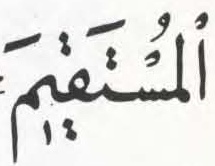 ٱلْمُسْتَقِيمَ